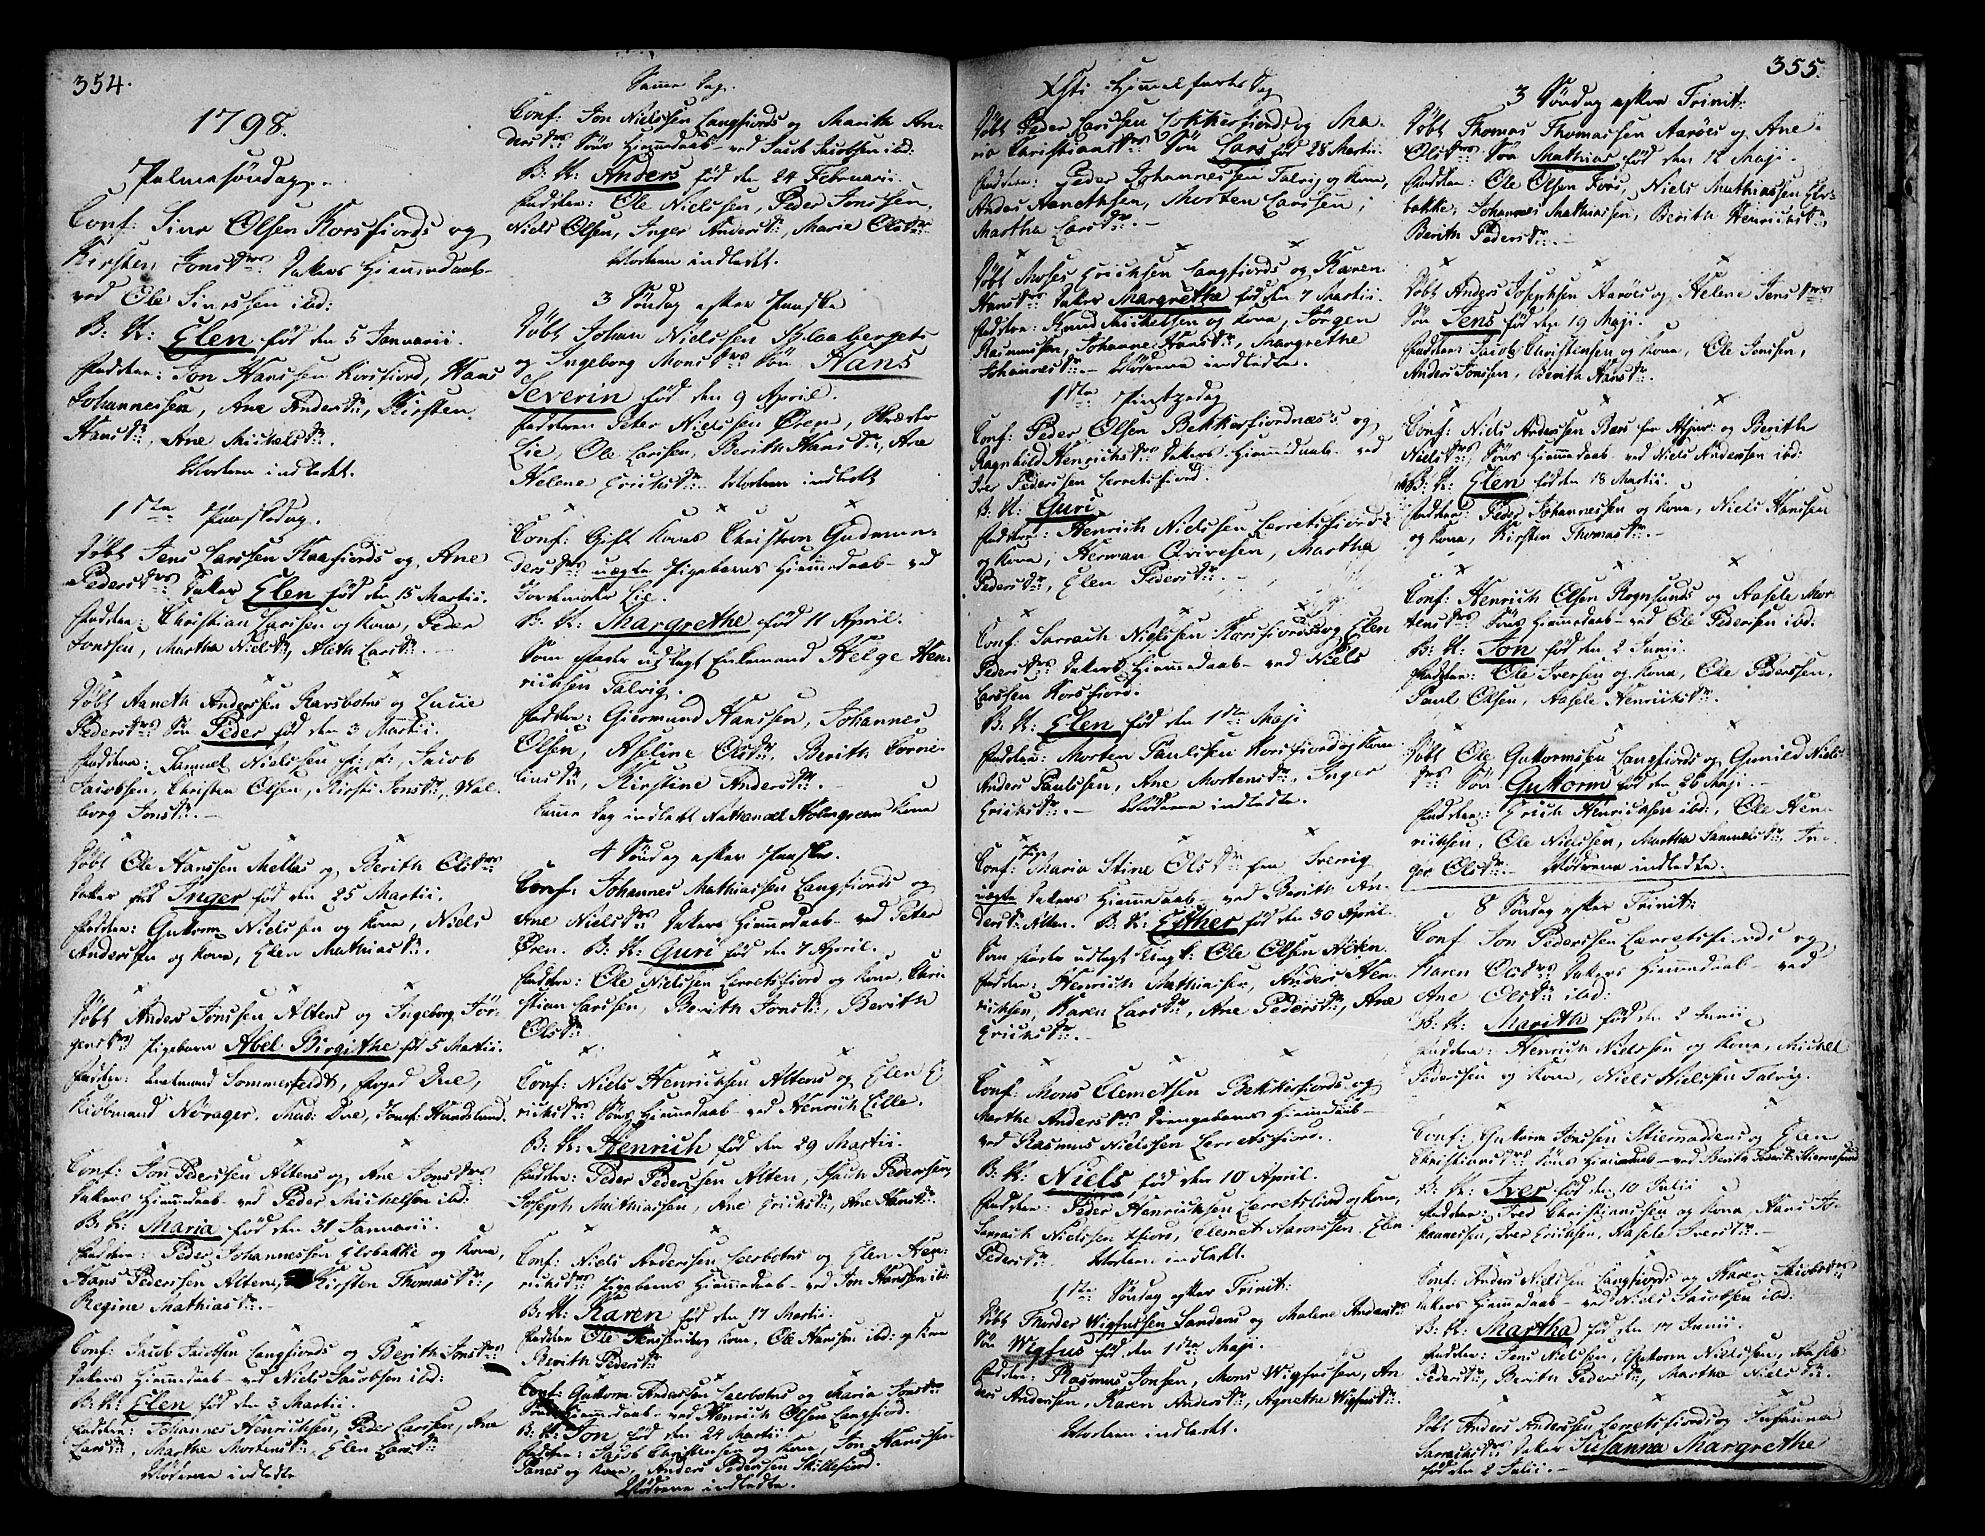 354.
1798.
Palmesöndag.
Conf: Siver Olsen Korsfiords og
Kirsten Jonsdrs: Datters Hiemmedaab
ved Ole Siversen ibd:
B: N: Elen föd den 5 Januarii.
Faddere: Jon Hanssen Korsfiord, Hans
Johannessen, Ane Andersdr:, Kirsten
Hansdr:, Ane Michelsdr:
Moderen indledet.
1ste Paaskedag.
Döbt Jens Larssen Kaafiords og Ane
Pedersdrs: Datter Elen föd den 15 Martii.
Faddere: Christian Larsen og Kone, Peder
Jonssen, Martha Nielsdr:, Aleth Larsdr:
Döbt Aaneth Anderssen Rarsbotns og Lucie
Pedersdrs: Sön Peder föd den 3 Martii.
Faddere: Samuel Nielssen, Jacob
Jacobsen, Christen Olsen, Kirsti Jonsdr:, Wal-
borg Jonsdr:
Döbt Ole Hanssen Mellas og Berith Olsdrs:
Datter Inger föd den 25 Martii.
Faddere: Guttorm Nielssen og Kone, Niels
Anderssen og Kone, Elen Mathiasdr:
Döbt Anders Jonssen Altens og Ingeborg Jör-
gensdrs: Pigebarn Abel Birgithe föd 5 Martii.
Faddere: Sommerfeldt, Foged Due,
Kiöbmand Norager, Mad: Due, Jomf: Hundlund.
Conf: Jon Pederssen Altens og Ane Jonsdrs:
Datters Hiemmedaab ved Peder Michelsen ibd:
B: N: Maria föd den 31 Januarii.
Faddere: Peder Johannessen Elvebakke og Kone,
Hans Pederssen Alten, Kirsten Thomasdr:,
Regine Mathiasdr:
Conf: Jacob Jacobsen Langfiords og Berith Jonsdrs:
Datters Hiemmedaab ved Niels Jacobsen ibd:
B: N: Elen föd den 3 Martii.
Faddere: Johannes Henrichsen, Peder Larsen, Ane
Larsdr:, Marthe Mortensdr:, Elen Larsdr:
Mödrene indledte
Samme Dag.
Conf: Jon Nielssen Langfiords og Marith An-
dersdrs: Söns Hiemmedaab ved Jacob Jacobsen ibd:
B: N: Anders föd den 24 Februarii.
Faddere: Ole Nielssen, Peder Jonssen,
Niels Olsen, Inger Andersdr:, Marie Olsdr:
Moderen indledet.
3 Söndag efter Paaske
Döbt Johan Nielssen
og Ingeborg Monsdrs: Sön Hans
Severin föd den 9 April.
Faddere Peter Nielssen Ören,
Lie, Ole Larssen, Berith Hansdr:, Ane
Helene Erichsdr: Moderen indledet
Conf: Gift Kones Christen Gudmun-
dersdrs: uægte Pigebarns Hiemmedaab ved
Jordmoder Lie.
B: N: Margrethe föd 11 April.
Som Fader udlagt Enkemand Helge Hen-
richsen Talvig.
Faddere: Giermund Hanssen, Johannes
Olsen, Aseline Olsdr:, Berith Corne-
liusdr:, Kirstine Andersdr:
Samme Dag indledt Nathanael Holmgreens Kone
4 Söndag efter Paaske.
Conf: Johannes Mathiassen Langfiords og
Ane Nielsdrs: Datters Hiemmedaab ved Peter
Ören. B: N: Guri föd den 7 April.
Faddere: Ole Nielssen Lerretsfiord og Kone, Chri-
stian Larssen, Berith Jonsdr:, Berith
Olsdr:
Conf: Niels Henrichsen Altens og Elen E-
richsdrs: Söns Hiemmedaab ved Henrich Lille.
B: N: Henrich föd den 29 Martii.
Faddere: Peder Pederssen Alten, Isach Pederssen,
Joseph Mathiassen, Ane Erichsdr:, Ane Hansdr:
Conf: Niels Andersen Leerbotns og Elen Hen-
richsdrs: Pigebarns Hiemmedaab ved Jon Hanssen ibd:
B: N: Karen föd den 17 Martii.
Faddere Ole Jenssen og Kone, Ole Hanssen ibd: og Kone
Berith Pedersdr:
Conf: Guttorm Anderssen Leerbotns og Maria Jonsdrs:
Söns Hiemmedaab ved Henrich Olsen Langfiord.
B: N: Jon föd den 24 Martii
Faddere: Jacob Christensen og Kone, Jon Hanssen
og Kone, Anders Pederssen Skillefiord.
Mödrene indledte.
355.
Xsti Himmelfarts Dag
Döbt Peder Larssen Lokkerfiords og Ma-
ria Christiansdrs: Sön Lars föd 28 Martii.
Faddere: Peder Johannessen Talvig og Kone,
Anders Aanethsen, Morten Larssen,
Martha Larsdr:
Döbt Moses Erichsen Langfiords og Karen
Hansdrs: Datter Margrethe föd den 7 Martii.
Faddere: Knud Michelsen og Kone, Jörgen
Rasmussen, Johanne Hansdr:, Margrethe
Johannesdr: Mödrene indledte.
1ste Pintzedag
Conf: Peder Olsen Bekkerfiordnæss og
Ragnhild Henrichsdrs: Datters Hiemmedaab ved
Iver Pederssen Lerretsfiord.
B: N: Guri
Faddere: Henrich Nielssen Lerretsfiord
og Kone, Herman Qvivesen, Martha
Pedersdr:, Elen Pedersdr:
Conf: Sarrach Nielssen Korsfiords og Elen
Pedersdrs: Datters Hiemmedaab ved Niels
Larssen Korsfiord.
B: N: Elen föd den 1ste Maji
Faddere: Morten Paulssen Korsfiord og Kone
Anders Paulssen, Ane Mortensdr:, Inger
Erichsdr: Mödrene indledte.
Conf: Pige Maria Stine Olsdr: fra Sverrig
uægte Datters Hiemmedaab ved Berith An-
dersdr: Alten. B: N: Esther föd den 30 April.
Som Fader udlagt Ungk: Ole Olsen Alten.
Faddere: Henrich Mathiassen, Anders Hen-
richsen, Karen Larsdr:, Ane Pedersdr:, Ane
Erichsdr:
Conf: Mons Clemetsen Bekkerfiords og
Marthe Andersdrs: Drengebarns Hiemmedaab
ved Rasmus Nielssen Lerretsfiord.
B: N: Niels föd den 10 April.
Faddere: Peder Henrichsen Lerretsfiord og Kone,
Sarrach Nielssen, Clemet Larssen, Elen
Pedersdr: Moderen indledet.
1ste Söndag efter Trinit:
Döbt Thorder Wigfussen Sandens og Malene Andersdrs:
Sön Wigfus föd den 1ste Maji.
Faddere: Rasmus Jonsen, Mons Wigfussen, An-
ders Andersen, Karen Andersdr:, Agnethe Wigfusdr:
Moderen indledet.
3 Söndag efter Trinit:
Döbt Thomas Thomassen Aaröes og Ane
Olsdrs: Sön Mathias föd den 12 Maji.
Faddere: Ole Olsen Fors, Niels Mathiassen Elv-
bakke, Johannes Mathiassen, Berith Henrichsdr:,
Berith Pedersdr:
Döbt Anders Josephsen Aaröes og Helene Jensdrs:
Sön Jens föd den 19 Maji.
Faddere Jacob Christensen og Kone, Ole Jonssen,
Anders Jonssen, Berith Hansdr:
Conf: Niels Anderssen og Berithe
Nielsdrs: Söns Hiemmedaab ved Niels Andersen ibd:
B: N: Elen föd den 18 Martii.
Faddere: Peder Johannessen og Kone, Niels Hanssen
og Kone, Kirsten Thomasdr:
Conf: Henrich Olsen Rognsunds og Aasele Mor-
tensdrs: Söns Hiemmedaab ved Ole Pederssen ibd:
B: N: Jon föd den 2 Junii.
Faddere: Ole Iversen og Kone, Ole Pederssen,
Paul Olsen, Aasele Henrichsdr:
Döbt Ole Guttormsen Langfiords og Gunild Niels-
drs: Sön Guttorm föd den 26 Maji.
Faddere: Erich Henrichsen ibd:, Ole Hen-
richsen, Ole Nielssen, Martha Samuelsdr:, In-
ger Olsdr: Mödrene indledte.
8 Söndag efter Trinit:
Conf: Jon Pederssen Lerretsfiords og
Karen Olsdrs: Datters Hiemmedaab ved
Ane Olsdr: ibd:
B: N: Marith föd den 2 Junii.
Faddere: Henrich Nielssen og Kone, Michel
Pederssen og Kone, Niels Nielssen Talvig.
Conf: Guttorm Jonssen Stiernødens og Elen
Christiansdrs: Söns Hiemmedaab ved Berith Stiernesund
B: N: Iver föd den 10 Julii
Faddere: Christianssen og Kone, Hans Jo-
hannessen, Iver Erichsen, Aasele Iversdr:
Conf: Anders Nielssen Langfiords og Karen Jacobsdrs:
Datters Hiemmedaab ved Niels Jacobsen ibd:
B: N: Martha föd den 17 Junii.
Faddere: Jens Nielssen, Guttorm Nielssen, Aasele
Pedersdr:, Berith Pedersdr:, Martha Nielsdr:
Döbt Anders Anderssen Lerretsfiords og Susanna
Sarrachsdrs: Datter Susanna Margrethe
föd den 2 Julii.